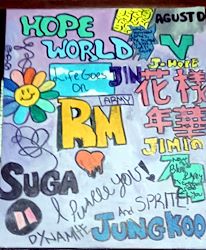 HOPE
WORLD
AGUST D
V
J-Hope
Life Goes
On
JIN
花樣
年華
ARMY
RM
JIMIN
7
SUGA
I Purple you
And SPRITE!
DYNAMITE
JUNGKOO